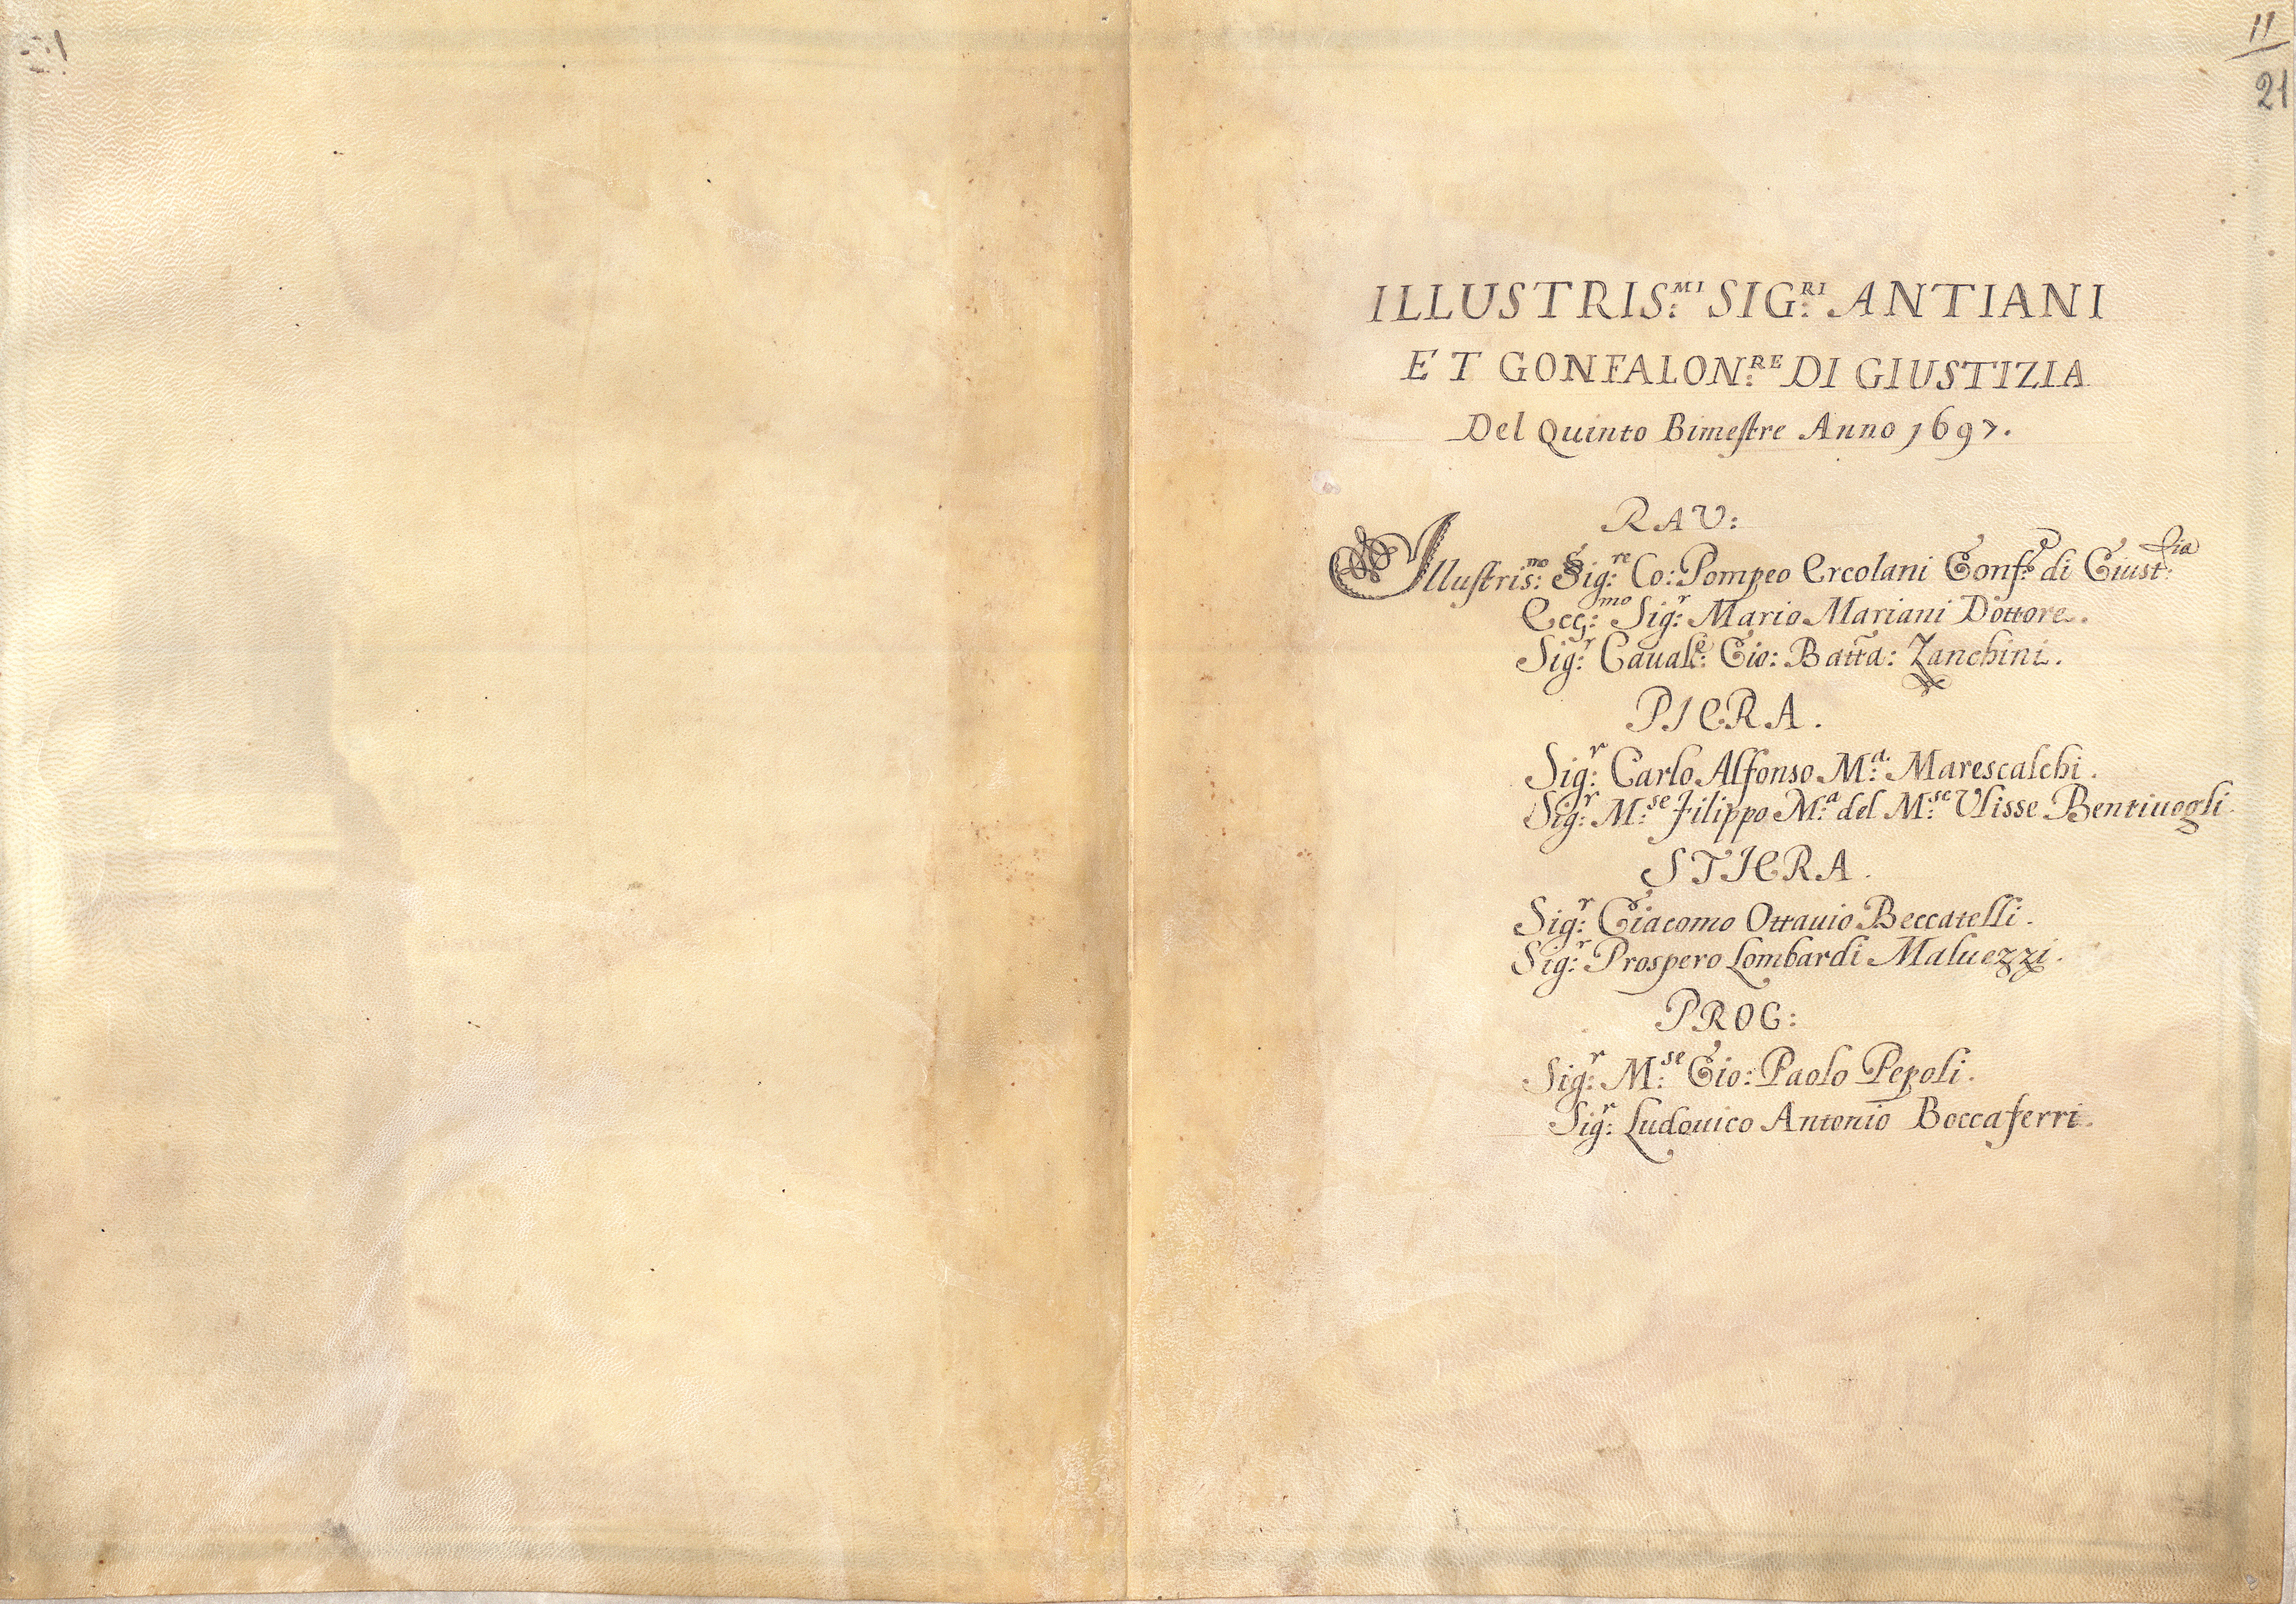 11
21
ILLUSTRIS:MI SIG:RI ANTIANI
ET GONFALON:RE DI GIUSTIZIA
Del Quinto Bimestre Anno 1697.
RAV:
Illustris:mo Sig:re Co: Pompeo Ercolani Gonf:e di Giust:tia
Ecc:mo Sig:r Mario Mariani Dottore.
Sig:r Caual:e Gio: Batta: Zanchini.
PIERA.
Sig:r Carlo Alfonso M:a Marescalchi.
Sig:r M:se Filippo M:a del M:se Ulisse Bentiuogli
STIERA.
Sig:r Giacomo Ottauio Beccatelli.
Sig:r Prospero Lombardi Maluezzi.
PROC:
Sig:r M:se Gio: Paolo Pepoli.
Sig:r Ludouico Antonio Boccaferri.